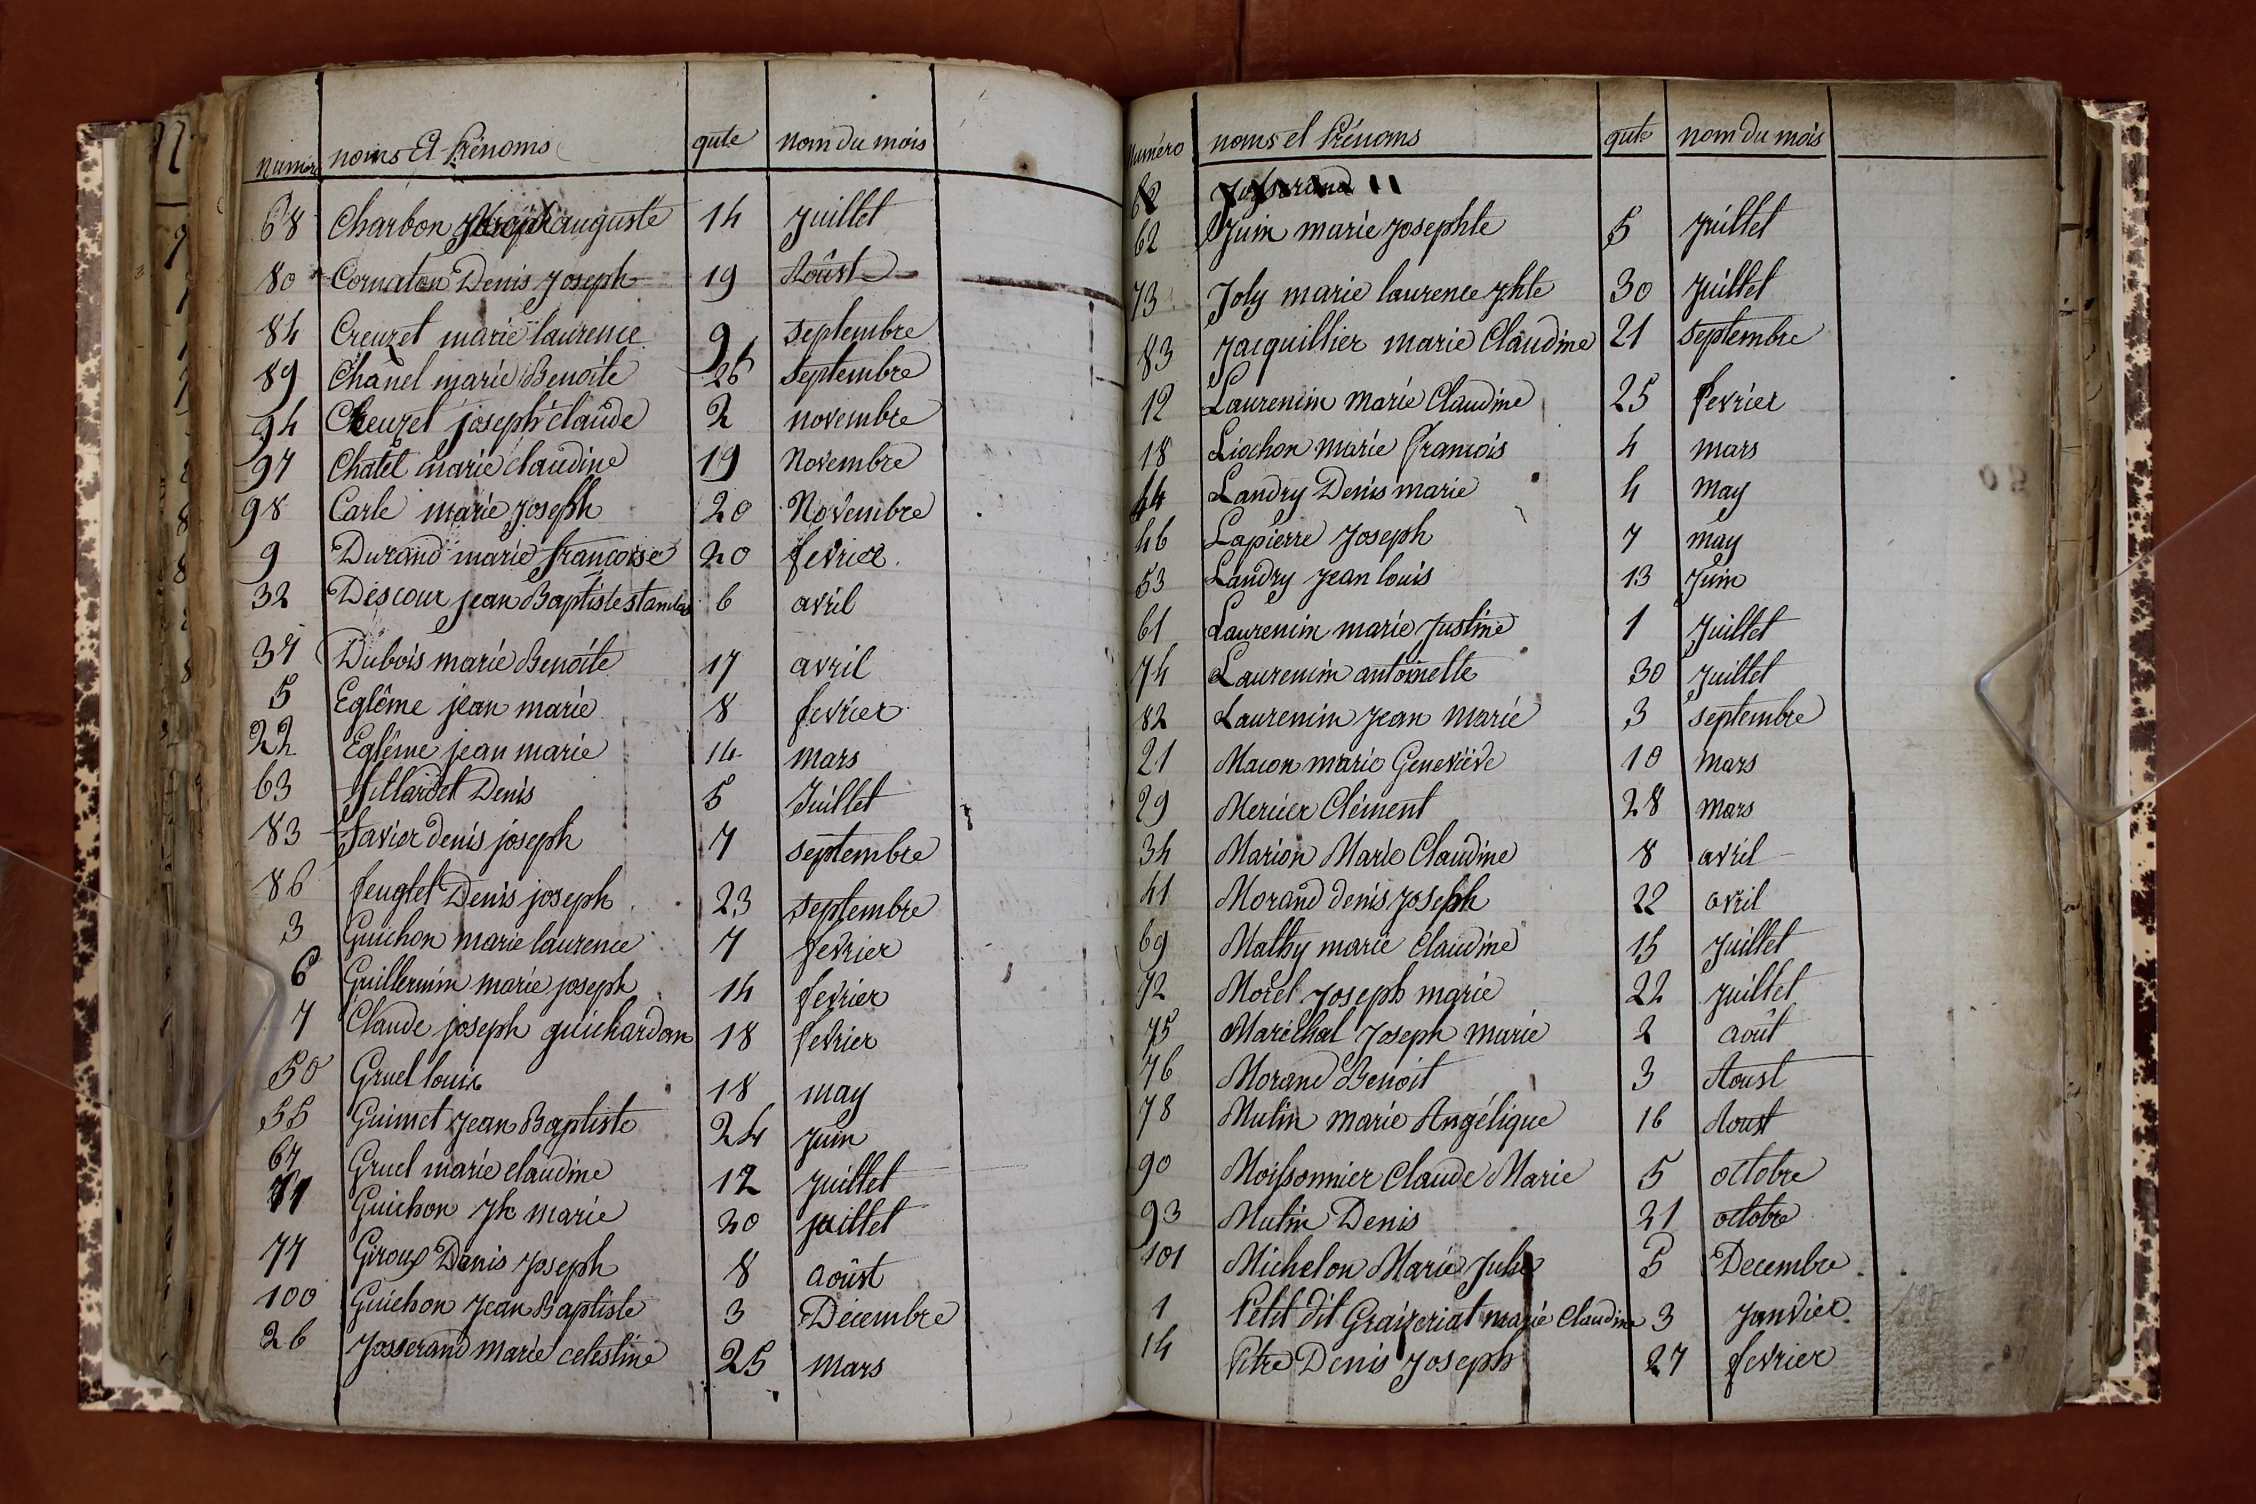 numero noms et Prénoms qute nom du mois
68 Charbon auguste 14 Juillet
80 Cornaton Denis Joseph 19 Aoûst
84 Creuzet marie laurence 9 septembre
89 Chanel marie Benoite 26 septembre
94 Creuzet joseph claude 2 novembre
97 Chatel marie claudine 19 Novembre
98 Carle marie joseph 20 Novembre
9 Durand marie françoise 20 fevrier
32 Descour jean Baptiste stanislas 6 avril
37 Dubois marie Benoite 17 avril
5 Eglême jean marie 8 fevrier
22 Eglême jean marie 14 mars
63 fillardet Denis 5 Juillet
83 favier denis joseph 7 septembre
86 feuglet Denis joseph 23 septembre
3 Guichon marie laurence 7 fevrier
6 Guillermin marie joseph 14 fevrier
7 Claude joseph guichardon 18 fevrier
50 Gruel louis 18 may
55 Guimet Jean Baptiste 24 Juin
67 Gruel marie claudine 12 Juillet
71 Guichon Jh marie 20 juillet
77 Giroux Denis Joseph 8 aoûst
100 Guichon Jean Baptiste 3 Décembre
26 Josserand marie celestine 25 mars
Numéro noms et Prénoms qute nom du mois
62 Josserand
62 Juin marie Josephte 5 Juillet
73 Joly marie laurence jhte 30 Juillet
83 Jacquillier marie Claudine 21 septembre
12 Laurencin Marie Claudine 25 fevrier
18 Liochon marie François 4 mars
44 Landry Denis marie 4 may
46 Lapierre Joseph 7 may
53 Landry Jean louis 13 Juin
61 Laurencin marie Justine 1 Juillet
74 Laurencin antoinette 30 Juillet
82 Laurencin Jean Marie 3 septembre
21 Macon marie Geneviève 10 mars
29 Mercier Clément 28 mars
34 Marion Marie Claudine 8 avril
41 Morand denis Joseph 22 avril
69 Mathy marie Claudine 15 Juillet
72 Morel Joseph marie 22 juillet
75 Maréchal Joseph marie 2 août
76 Morand Benoit 3 Aoust
78 Mutin marie Angélique 16 Aoust
90 Moissonnier Claude Marie 5 octobre
93 Mutin Denis 21 octobre
101 Michelon Marie Julie 5 Decembre
1 Petit dit marie Claudine 3 Janvier
14 Pitre Denis Joseph 27 fevrier